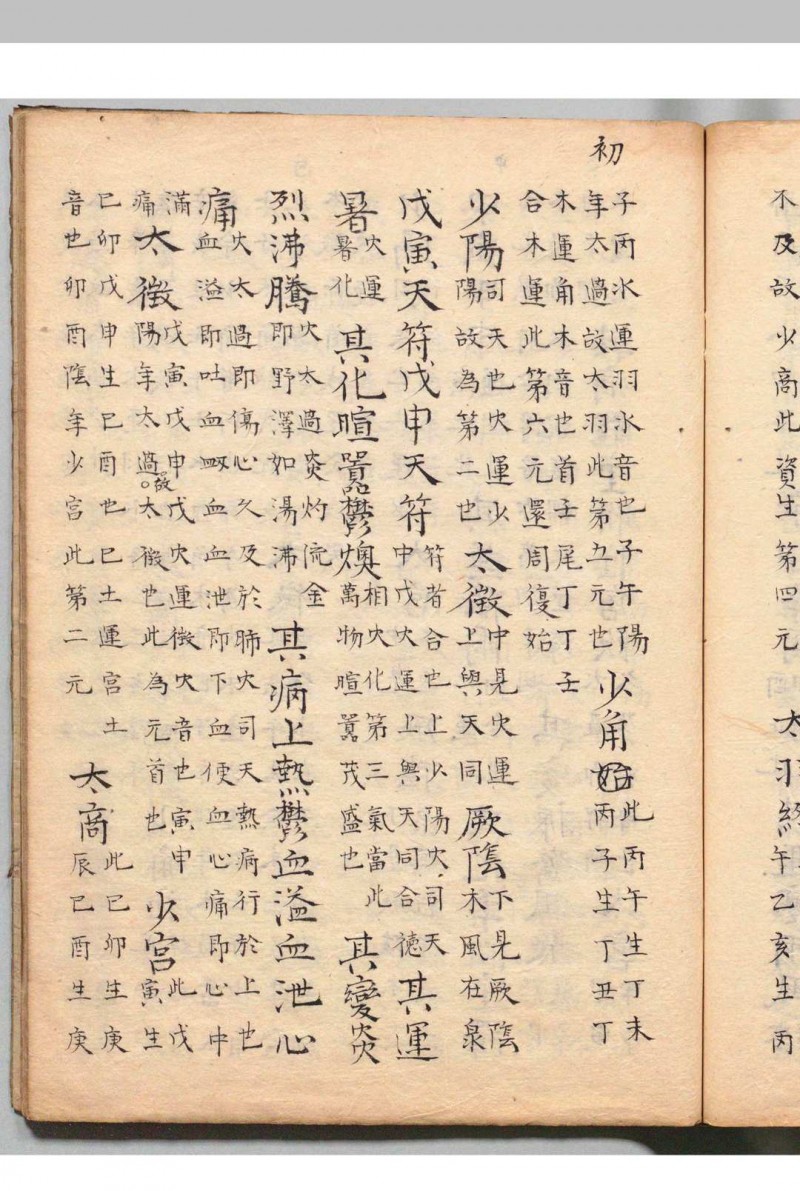 不及故少商此資生第四元
太羽終
午乙亥生丙
初
子丙水運羽水音也子午陽
年太過故太羽此第五元也
少角始
此丙午生丁未
丙子生丁丑丁
木運角木音也首壬尾丁丁壬
合木運此第六元還周復始
少陽
司天也火運少
陽故為第二也
太徵
中見火運
上與天同
厥陰
下見厥陰
木風在泉
戊寅天符戊申天符
符者合也上少陽火司天
中戊火運上與天同合德
其運
暑
火運
暑化
其化暄囂鬱燠
相火化第三氣當此
萬物暄囂茂盛也
其變炎
烈沸騰
火太過炎灼流金
即野澤如湯沸
其病上熱鬱血溢血泄心
痛
火太過即傷心久及於肺火司天熱病行於上也
血溢即吐血衂血血泄即下血便血心痛即心中
滿
痛
太徵
戊寅戊申戊火運徵火音也寅申
陽年太過故太徵也此為元首也
少宮
此戊
寅生
己卯戊申生己酉也己土運宮土
音也卯酉陰年少宮此第二元
太商
此己卯生庚
辰己酉生庚